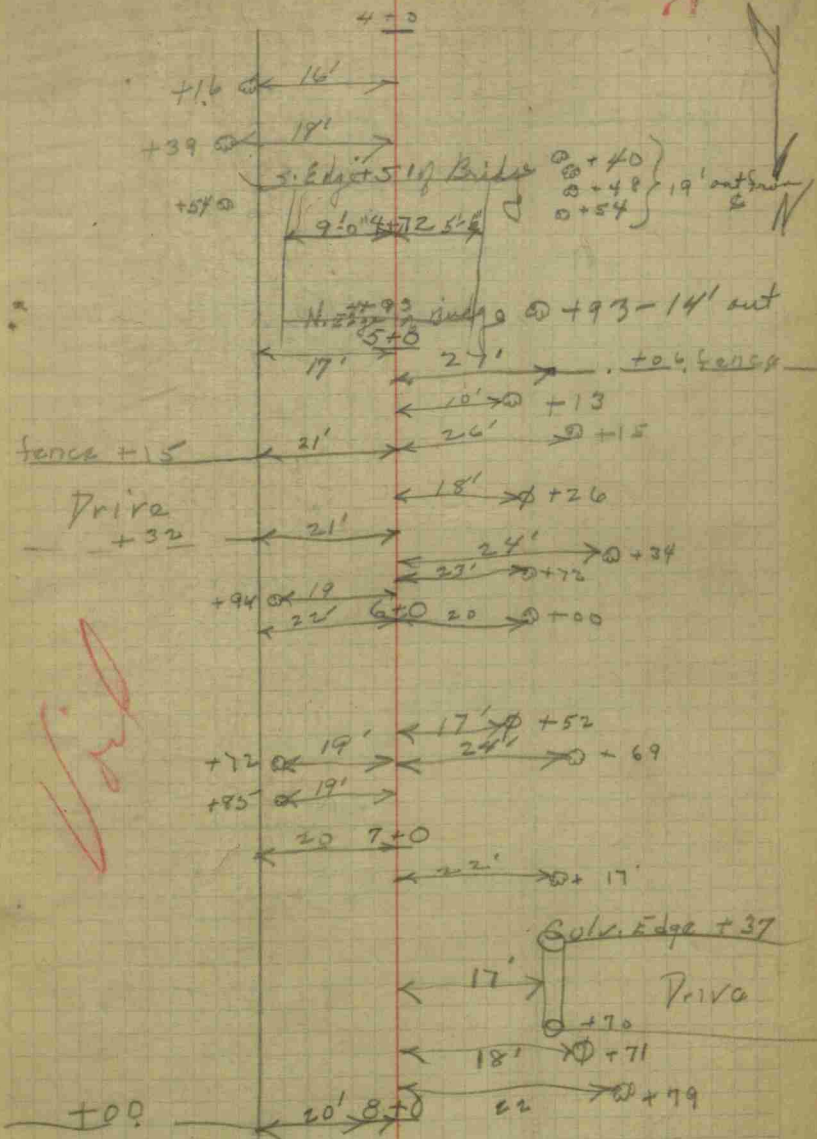 4+0
+16 16'
+39 19'
S. Edge +51 of Bridge +40
+48 19' out from ₵
+54 +54
9'-0" 4+72 5'-6"
N. Edge 4+93 Bridge +93-14' out
5+0
17' 27' +06 fence
10' +13
fence +15 21' 26' +15
18' +26
Drive
+32 21'
24' +34
23' +72
+94 19
22' 6+0 20 +00
17' +52
+72 19' 24' +69
+85 19'
20 7+0
22' +17
Culv. Edge +37
17' Drive
+70
18' +71
22 +79
+00 20' 8+0
N